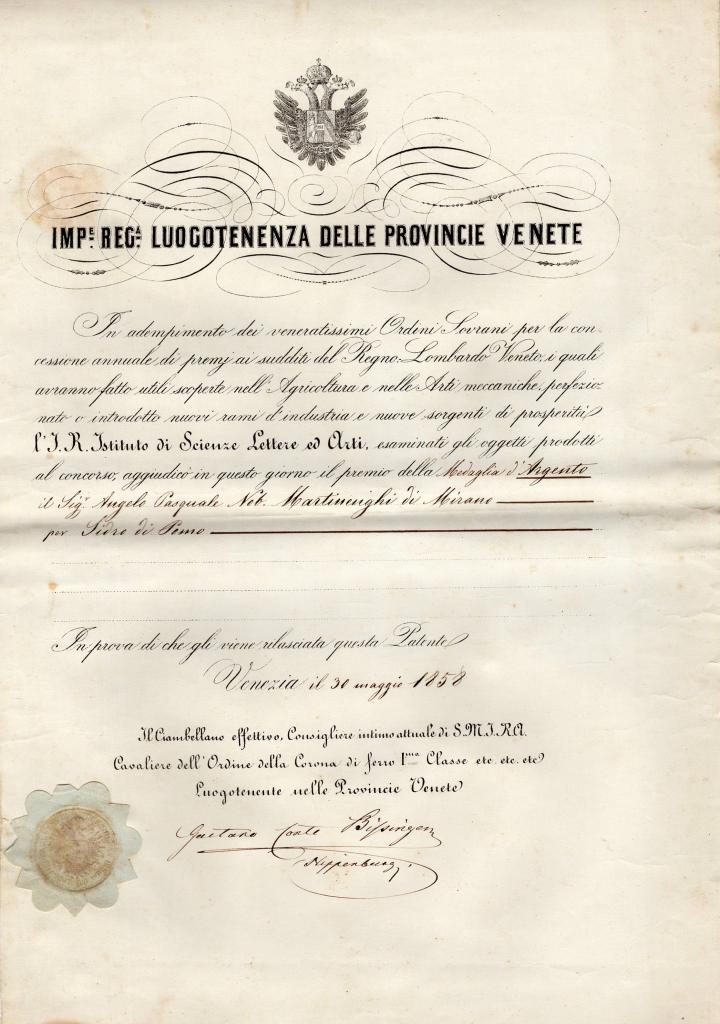 IMPE. REGA. LUOGOTENENZA DELLE PROVINCIE VENETE
In adempimento dei veneratissimi Ordini Sovrani per la con-
cessione annuale di premj ai sudditi del Regno Lombardo Veneto, i quali
avranno fatto utili scoperte nell'Agricoltura e nelle Arti meccaniche, perfezio-
nato o introdotto nuovi rami d'industria e nuove sorgenti di prosperità,
l'I. R. Istituto di Scienze Lettere ed Arti, esaminati gli oggetti prodotti
al concorso, aggiudicò in questo giorno il premio della Medaglia d'Argento
il Sigr. Angelo Pasquale Nob. Martinenghi di Mirano
per Sidro di Pomo
In prova di che gli viene rilasciata questa Patente
Venezia il 30 maggio 1858
Il Ciambellano effettivo, Consigliere intimo attuale di S. M. I. R. A.
Cavaliere dell'Ordine della Corona di ferro Ima Classe etc. etc. etc
Luogotenente nelle Provincie Venete
Gaetano Conte Bissingen
Nippenburg.